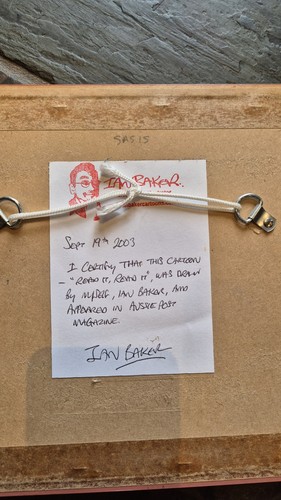 SAS 15
IAN BAKER.
SEPT 19TH 2003
I CERTIFY THAT THIS CARTOON
- "READ IT, READ IT", WAS DRAWN
BY MYSELF, IAN BAKER, AND
APPEARED IN AUSSIE POST
MAGAZINE.
IAN BAKER